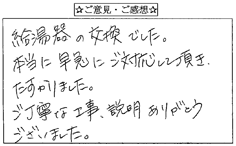 ☆ご意見・ご感想☆
給湯器の交換でした。
本当に早急にご対応して頂き、
たすかりました。
ご丁寧な工事、説明ありがとう
ございました。